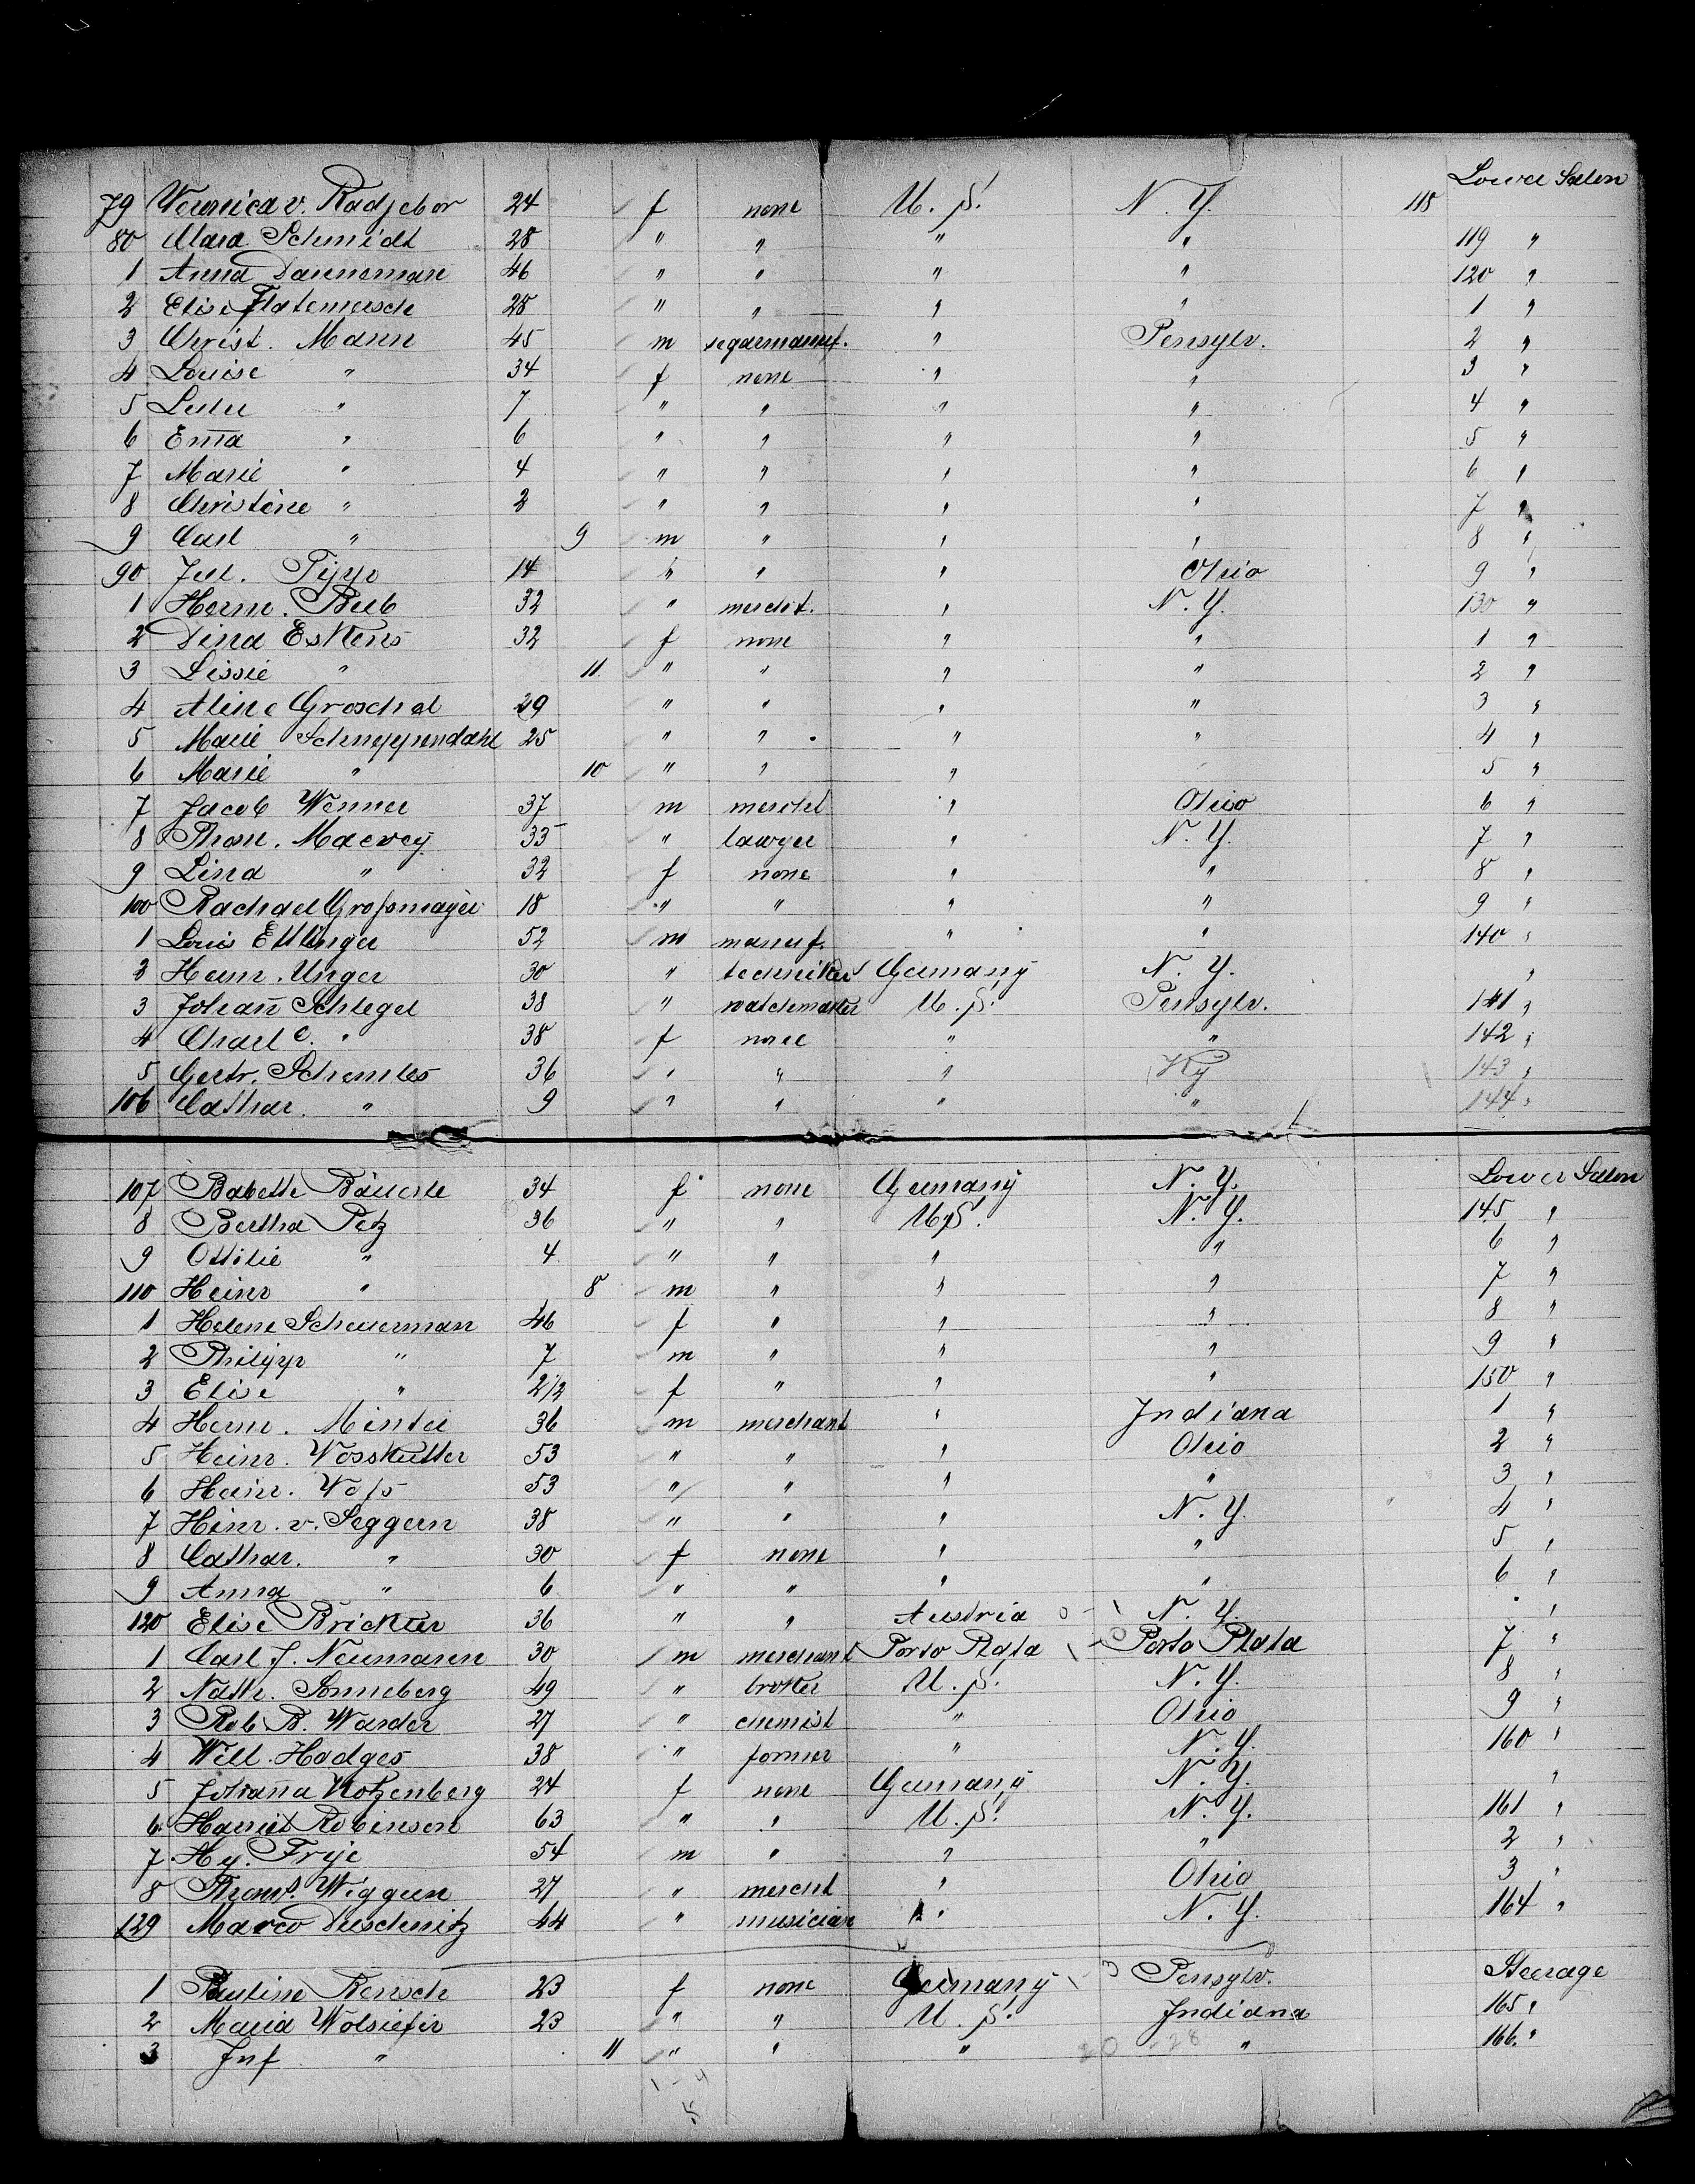 Lower Salon
79 Veronica v. Radjebor 24 f none U. S. N. Y. 118
80 Clara Schmidt 28 " " " " 119 "
1 Anna Danneman 46 " " " " 120 "
2 Elise 28 " " " " 1 "
3 Christ. Mann 45 m segarmanuf. " Pensylv. 2 "
4 Louise " 34 f none " " 3 "
5 " 7 " " " " 4 "
6 Em̄a " 6 " " " " 5 "
7 Marie " 4 " " " " 6 "
8 Christine " 2 " " " " 7 "
9 Carl " 9 m " " " 8 "
90 Jul. 14 " " " Ohio 9 "
1 Herm. Bub 32 " mercht. " N. Y. 130 "
2 Dina Eskens 32 f none " " 1 "
3 Lissie " 11 " " " " 2 "
4 Aline Groschel 29 " " " " 3 "
5 Marie Schneppendahl 25 " " " " 4 "
6 Marie " 10 " " " 5 "
7 Jacob Wenner 37 m mercht " Ohio 6 "
8 Thom. Macvey 33 " lawyer " N. Y. 7 "
9 Lina " 32 f none " " 8 "
100 Rachael Großmayer 18 " " " " 9 "
1 Louis Ettlinger 52 m manuf. " " 140 "
2 Herm. Unger 30 " techniker Germany N. Y. "
3 Johan̄ Schlegel 38 " watchmaker U. S. Pensylv. 141 "
4 Charl e. " 38 f none " " 142 "
5 Gertr. Schemles 36 " " " Ky 143 "
106 Cathar. " 9 " " " " 144 "
107 Babette Bäuerle 34 f none Germany N. Y. Lower Salon
8 Bertha Petz 36 " " U. S. N. Y. 145 "
9 Ottilie " 4 " " " " 6 "
110 Heinr " 8 m " " " 7 "
1 Helene Scheuerman 46 f " " " 8 "
2 Philipp " 7 m " " " 9 "
3 Elise " 2 1/2 f " " " 150 "
4 Herm. Mintei 36 m merchant " Indiana 1 "
5 Heinr. Vosskutter 53 " " " Ohio 2 "
6 Heinr. Voß 53 " " " " 3 "
7 Hinr. v. Seggern 38 " " " N. Y. 4 "
8 Cathar. " 30 f none " " 5 "
9 Anna " 6 " " " " 6 "
120 Elise Brickter 36 " " Austria 0 - 1 N. Y. "
1 Carl J. Neumann 30 m merchant Porto Plata Porto Plata 7 "
2 Nath. Sonneberg 49 " broker U. S. N. Y. 8 "
3 Rob B. Warder 27 " chemist " Ohio 9 "
4 Will. Hodges 38 " farmer " N. Y. 160 "
5 Johan̄a Klotzenberg 24 f none Germany N. Y. "
6 Harriet Robinson 63 " " U. S. N. Y. 161 "
7 Hy. Frye 54 m " " " 2 "
8 Thoms. Wiggeen 27 " mercht " Ohio 3 "
129 Marco Duschnitz 44 " musician " N. Y. 164 "
1 Pauline Rensch 23 f none Germany 1 - 3 Pensylv. Steerage
2 Maria Wolsiefir 23 " " U. S. Indiana 165 "
3 Inf " 11 " " " 20 - 28 " 166. "
1 - 4
5